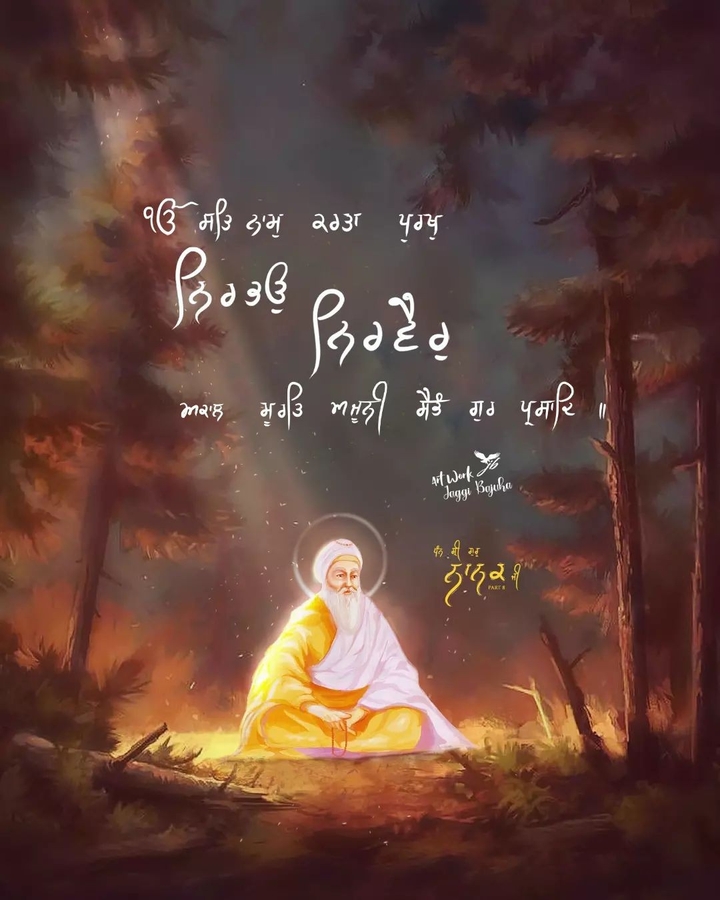 ੴ ਸਤਿ ਨਾਮੁ ਕਰਤਾ ਪੁਰਖੁ
ਨਿਰਭਉ
ਨਿਰਵੈਰੁ
ਅਕਾਲ ਮੂਰਤਿ ਅਜੂਨੀ ਸੈਭੰ ਗੁਰ ਪ੍ਰਸਾਦਿ ॥
Art Work jb
Jaggi Bajuha
ਧੰਨ ਸ੍ਰੀ ਗੁਰੂ
ਨਾਨਕ ਜੀ
PART 8